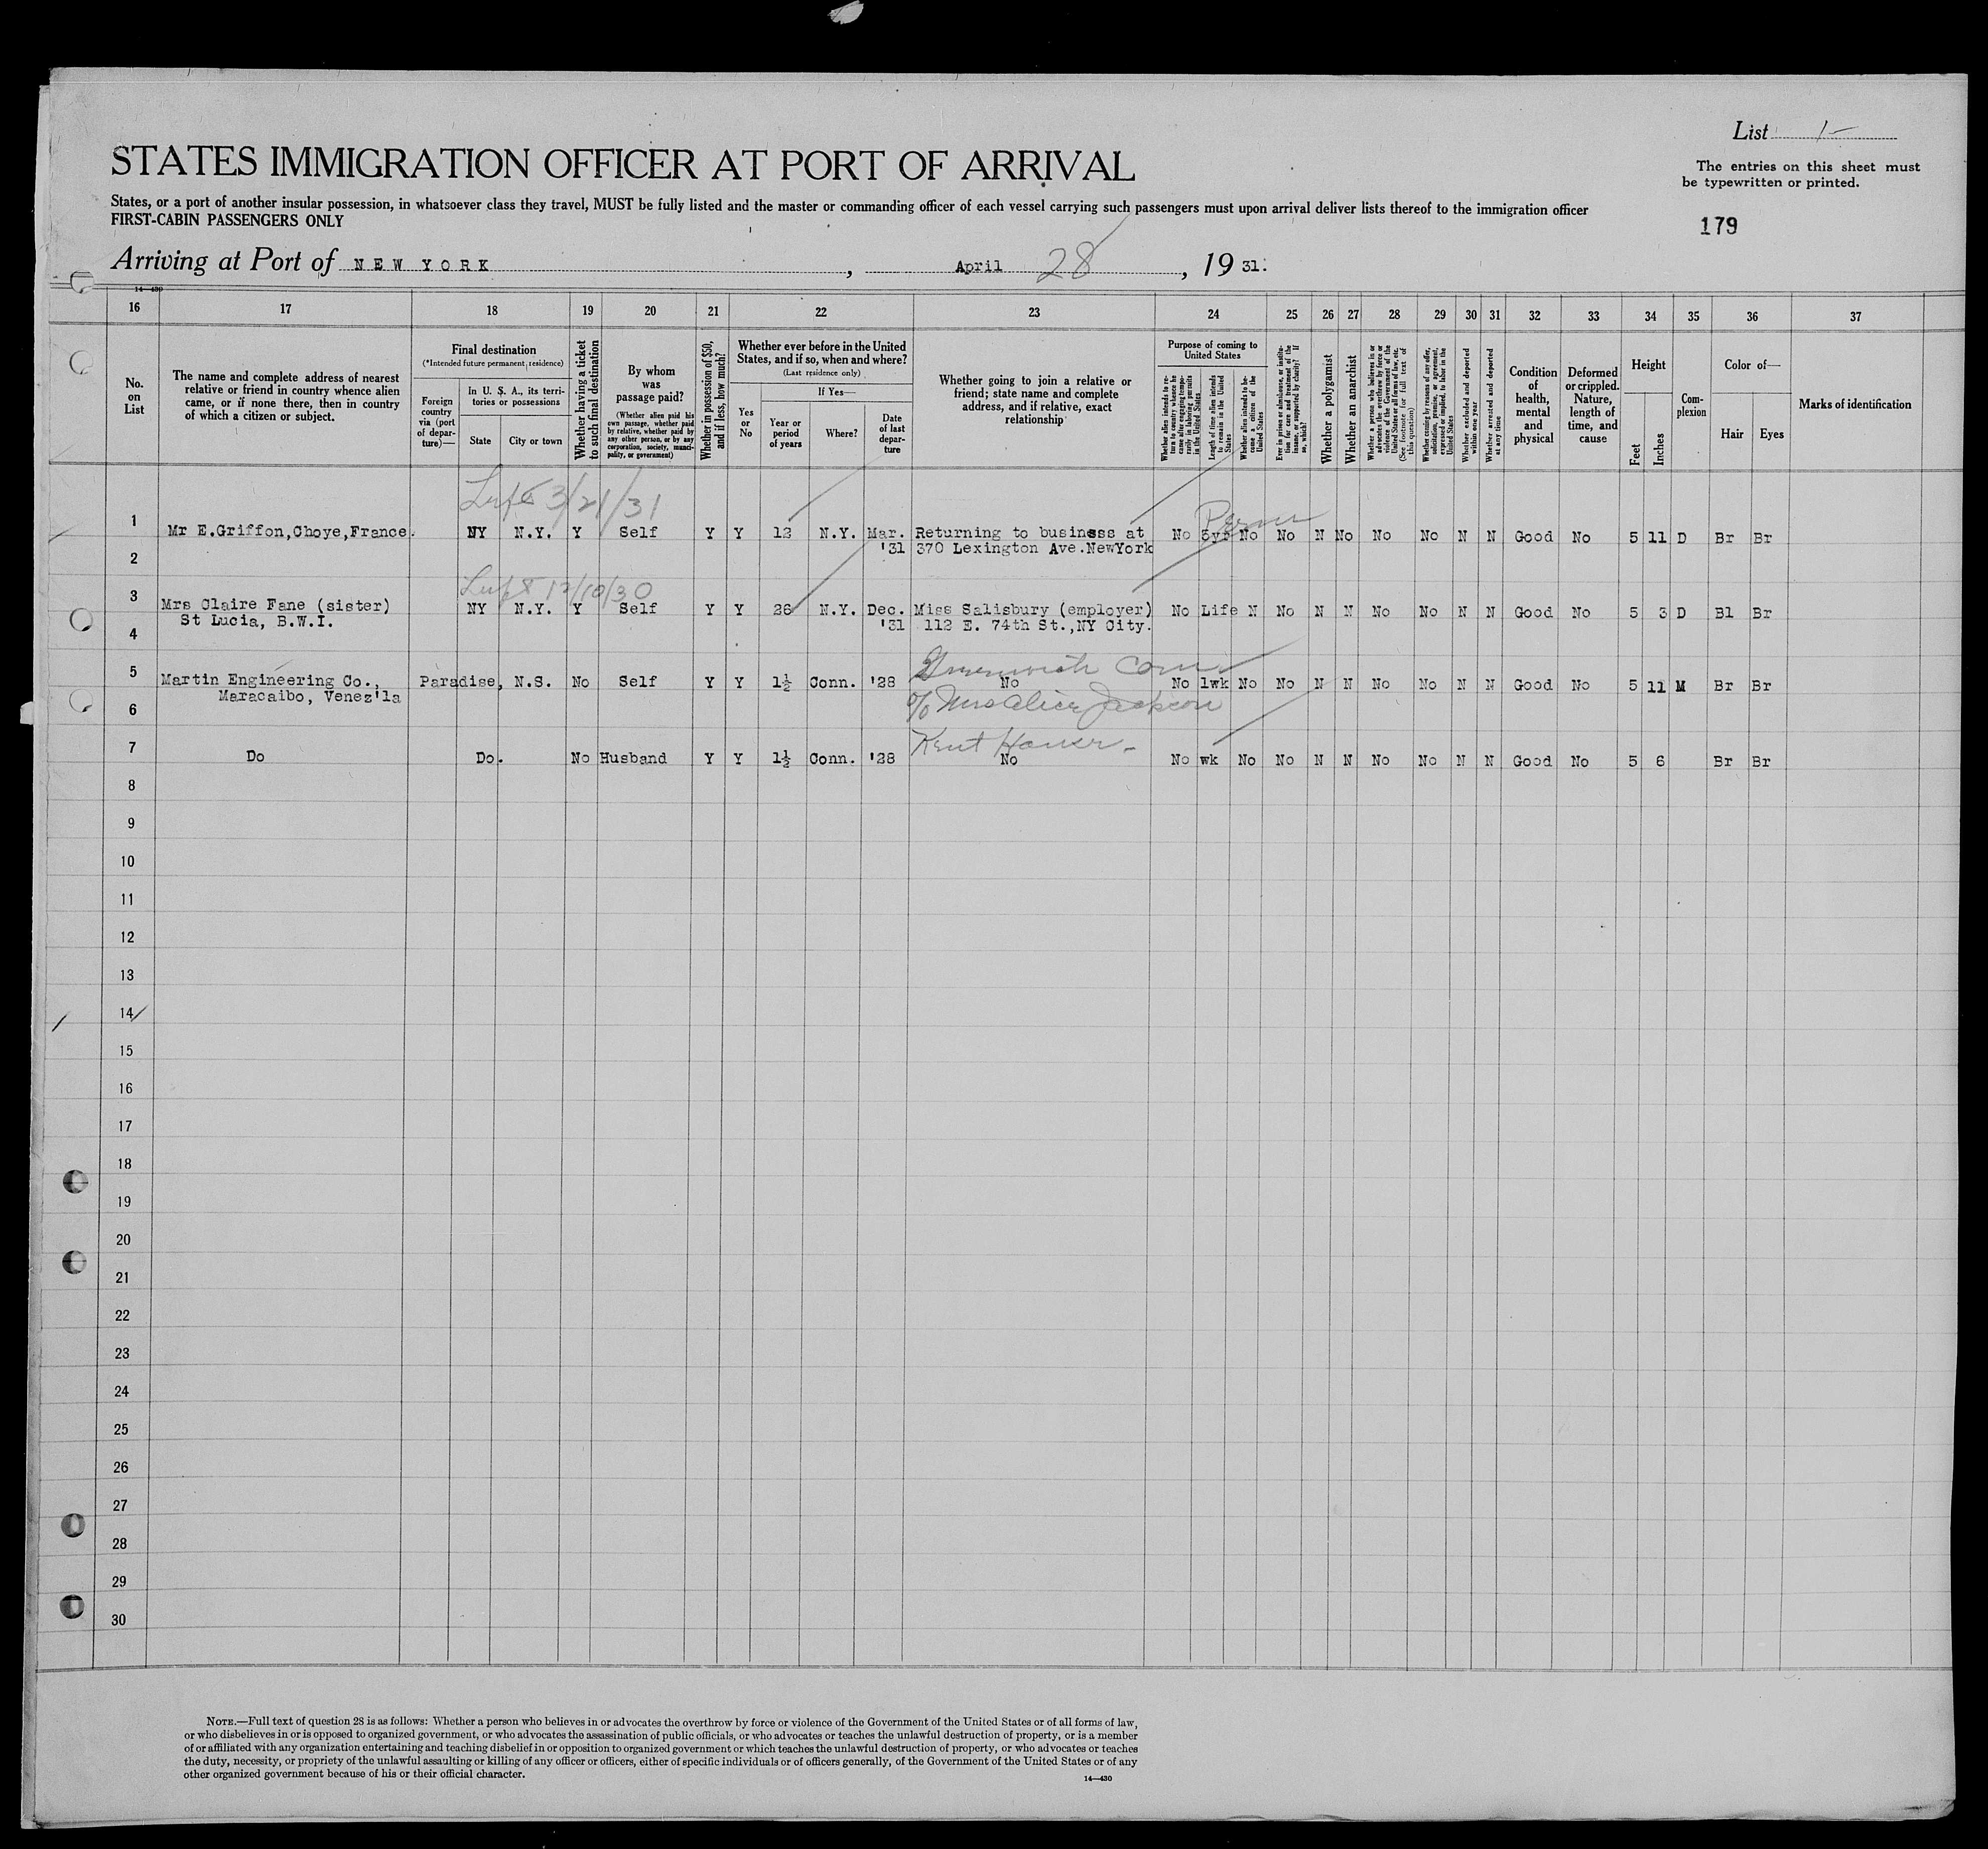 List 1-
STATES IMMIGRATION OFFICER AT PORT OF ARRIVAL
The entries on this sheet must
be typewritten or printed.
States, or a port of another insular possession, in whatsoever class they travel, MUST be fully listed and the master or commanding officer of each vessel carrying such passengers must upon arrival deliver lists thereof to the immigration officer
FIRST-CABIN PASSENGERS ONLY
179
Arriving at Port of NEW YORK, April 28, 19 31.
14—430
16 17 18 19 20 21 22 23 24 25 26 27 28 29 30 31 32 33 34 35 36 37
No. on List
The name and complete address of nearest relative or friend in country whence alien came, or if none there, then in country of which a citizen or subject.
Final destination
(*Intended future permanent residence)
Foreign country via (port of departure)—
In U. S. A., its territories or possessions
State
City or town
Whether having a ticket to such final destination
By whom was passage paid?
(Whether alien paid his own passage, whether paid by relative, whether paid by any other person, or by any corporation, society, municipality, or government)
Whether in possession of $50, and if less, how much?
Whether ever before in the United States, and if so, when and where?
(Last residence only)
Yes or No
If Yes—
Year or period of years
Where?
Date of last departure
Whether going to join a relative or friend; state name and complete address, and if relative, exact relationship
Purpose of coming to United States
Whether alien intends to return to country whence he came after engaging temporarily in laboring pursuits in the United States
Length of time alien intends to remain in the United States
Whether alien intends to become a citizen of the United States
Ever in prison or almshouse, or institution for care and treatment of the insane, or supported by charity? If so, which?
Whether a polygamist
Whether an anarchist
Whether a person who believes in or advocates the overthrow by force or violence of the Government of the United States or all forms of law, etc. (See footnote for full text of this question)
Whether coming by reasons of any offer, solicitation, promise, or agreement, expressed or implied, to labor in the United States
Whether excluded and deported within one year
Whether arrested and deported at any time
Condition of health, mental and physical
Deformed or crippled. Nature, length of time, and cause
Height
Feet
Inches
Complexion
Color of—
Hair
Eyes
Marks of identification
3/21/31
Perm
1 Mr E.Griffon,Choye,France. NY N.Y. Y Self Y Y 12 N.Y. Mar. Returning to business at No 5yr No No N No No No N N Good No 5 11 D Br Br
2 '31 370 Lexington Ave.NewYork
12/10/30
3 Mrs Claire Fane (sister) NY N.Y. Y Self Y Y 26 N.Y. Dec. Miss Salisbury (employer) No Life N No N N No No N N Good No 5 3 D Bl Br
St Lucia, B.W.I. '31 112 E. 74th St.,NY City.
4
Greenwich Conn
5 Martin Engineering Co., Paradise, N.S. No Self Y Y 1½ Conn. '28 No No 1wk No No N N No No N N Good No 5 11 M Br Br
Maracaibo, Venez'la
6 c/o Mrs Alice Jackson
Kent House -
7 Do Do. No Husband Y Y 1½ Conn. '28 No No wk No No N N No No N N Good No 5 6 Br Br
8
9
10
11
12
13
14
15
16
17
18
19
20
21
22
23
24
25
26
27
28
29
30
NOTE.—Full text of question 28 is as follows: Whether a person who believes in or advocates the overthrow by force or violence of the Government of the United States or of all forms of law,
or who disbelieves in or is opposed to organized government, or who advocates the assassination of public officials, or who advocates or teaches the unlawful destruction of property, or is a member
of or affiliated with any organization entertaining and teaching disbelief in or opposition to organized government or which teaches the unlawful destruction of property, or who advocates or teaches
the duty, necessity, or propriety of the unlawful assaulting or killing of any officer or officers, either of specific individuals or of officers generally, of the Government of the United States or of any
other organized government because of his or their official character.
14—430